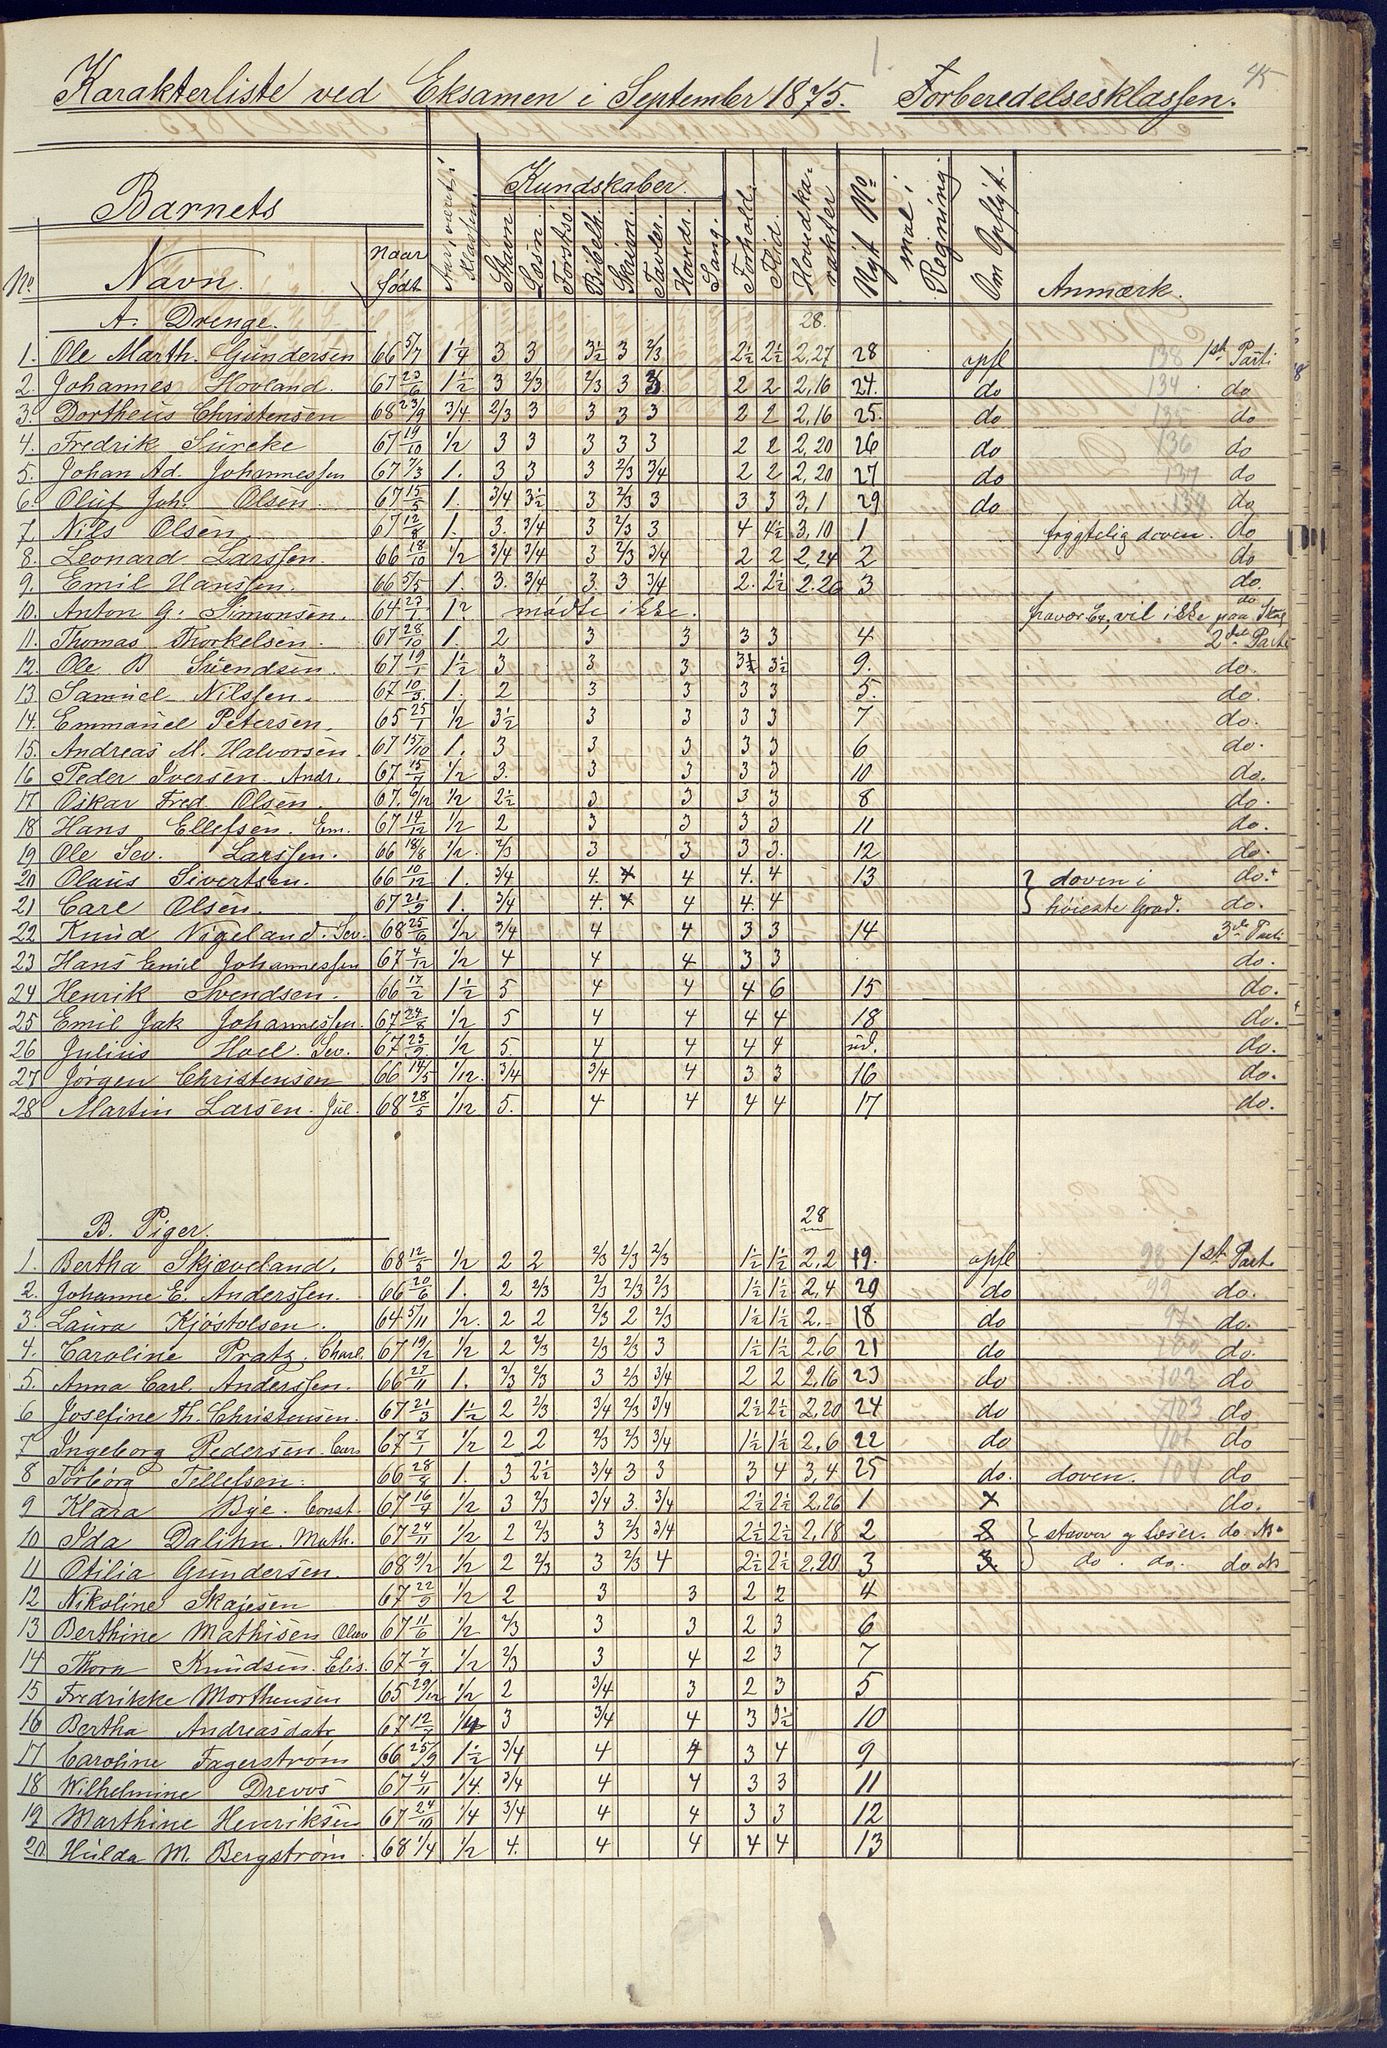 45
1.
Karakterliste ved Eksamen i September 1875. Forberedelsesklassen.
Barnets
Kundskaber.
No Navn. Naar født Aar været i Klassen. Stavn. Læsn. Bibelh. Skrivn. Tavler. Hovedr. Sang. Forhold. Flid. Hovedkarakter Nyt No Regning Om Opflyt. Anmærk.
A. Drenge. 28.
1. Ole Marth. Gundersen 66 5/7 1 1/4 3 3 3 1/2 3 2/3 2 1/2 2 1/2 2,27 28 opfl 138 1st Parti
2. Johannes Hovland. 67 23/6 1 1/2 3 2/3 2/3 3 2 2 2,16 24. do 134 do
3. Dortheus Christensen 68 23/9 3/4. 2/3 3 3 3 3 2 2 2,16 25. do 135 do
4. Fredrik Sürcke 67 19/10 1/2 3 3 3 3 3 2 2 2,20 26 do 136 do
5. Johan Ad. Johannessen 67 7/3 1. 3 3 3 2/3 3/4 2 2 2,20 27 do 137 do
6. Oluf Joh. Olsen 67 15/5 1. 3/4 3 1/2 3 2/3 3 3 3 3,1 29 do 139 do
7 Nils Olsen 67 12/8 1. 3. 3/4 3 2/3 3 4 4 1/2 3,10 1 frygtelig doven. do
8. Leonard Larssen. 66 18/10 1/2 3/4 3/4 3 2/3 3/4 2 2 2,24 2 do
9. Emil Hanssen. 66 5/5 1. 3. 3/4 3. 3 3/4 2. 2 1/2 2.26 3 do
10. Anton G. Simonsen. 64 23/1 mødte ikke. do
11. Thomas Thorkelsen. 67 28/10 1. 2 3 3 3 3 4 2det Parti
12. Ole B Svendsen. 67 19/1 1 1/2 3 3 3 3 1/2 3 1/2 9. do.
13 Samuel Nilssen. 67 10/3 1. 2 3 3 3 3 5. do
14. Emmanuel Petersen. 65 25/1 1/2 3 1/2 3 3 3 3 7 do.
15. Andreas M. Halvorsen. 67 15/10 1. 3 3 3 3 3 6 do.
16 Peder Iversen. Andr. 67 15/7 1/2 3. 3 3 3 3 10 do.
17 Oskar Fred. Olsen. 67. 6/12 1/2 2 1/2 3 3 3 3 8 do.
18 Hans Ellefsen. Em. 67 14/12 1/2 2 3 3 3 3 11 do.
19 Ole Sev. Larssen. 66 18/8 1/2. 2/3 3 3 3 3. 12 do.
20 Olaus Sivertsen. 66 10/12 1. 3/4 4. x 4 4. 4 13 } doven i do.
21 Carl Olsen. 67 21/9 1. 3/4 4. x 4 4. 4 } høieste Grad. do.
22 Knud Nigeland. Sev. 68 25/6 1/2 3/4 4 4 3 3 14 3die Parti
23 Hans Emil Johannessen 67 4/12 1/2 4 4 4 3 3 do.
24 Henrik Svendsen. 66 17/2 1 1/2 5 4 4 4 6 15 do.
25 Emil Jak Johannessen. 67 24/8 1/2 5 4 4 4 4 18 do.
26 Julius Hoel. Sev. 67 23/9 1/2 5. 4 4 4 4 ud. do.
27 Jørgen Christensen 66 14/5 1/12. 3/4 3/4 4 3 3 16 do.
28 Martin Larsen. Jul. 68 28/5 1/12 5. 4 4 4 4 17 do.
B. Piger. 28
1. Bertha Skjæveland. 68 12/5 1/2 2 2 2/3 2/3 2/3 1 1/2 1 1/2 2,2 19. opfl 98 1st Part.
2. Johanne E. Anderssen. 66 20/6 1. 2 2/3 2/3 2/3 2/3 1 1/2 1 1/2 2,4 20 do 99 do.
3. Laura Kjøstolsen. 64 5/11 1/2. 2 2 2/3 2 2/3 1 1/2 1 1/2 2.- 18 do 97 do.
4. Caroline Pratz. Charl. 67 19/2 1/2 2 2/3 2/3 2/3 3 1 1/2 1 1/2 2,6 21 do 100 do
5. Anna Carl. Anderssen. 66 27/11 1. 2/3 2/3 3 2/3 3/4 2 2 2,16 23 do 102 do
6 Josefine Th. Christensen. 67 21/3 1 1/2 2 2/3 3/4 2/3 3/4 2 1/2 2 1/2 2,20 24 do 103 do
7 Ingeborg Pedersen. 67 8/1 1/2 2 2 2/3 2/3 3/4 1 1/2 1 1/2 2,6 22 do 101 do
8 Torborg Tellefsen. 66 28/8 1. 3 2 1/2 3/4 3 3 3 4 3,4. 25 do. doven. 104 do
9 Klara Bye. Const. 67 16/4 1/2 3 2/3 3/4 3. 3/4 2 1/2 2 1/2 2,26 1 do.
10 Ida Dalihn. Math. 67 24/11 1/2 2 2/3 3 2/3 3/4 2 1/2 2 1/2 2,18 2 2 } staver og læser. do. Nb
11 Otilia Gundersen. 68 9/2 1/2 2 2/3 3 2/3 4 2 1/2 2 1/2 2,20 3 3. do. do. do Nb
12 Nikoline Skajesen 67 22/9 1/2 2 3 3 2 2 4
13 Berthine Mathisen Olsen 67 11/6 1/2 2/3 3 3 2 3 6
14 Thora Knudsen. Elis. 67 7/9 1/2 2/3 3 4 2 3 7
15 Fredrikke Morthensen 65 29/12 1/2 2 3/4 3 2 3 5
16 Bertha Andreasdatr 67 12/7 1/4 3 3/4 4 3 3 1/2 10
17 Caroline Fagerstrøm 66 25/9 1 1/2 3/4 4 4 3 4 9
18 Wilhelmine Drevos 67 4/11 1/4. 3/4 4 4 3 3 11
19 Marthine Henriksen 67 24/10 1/4 3/4 4 4 3 3 12
20 Hulda M. Bergstrøm. 68 1/4 1/2 4. 4 4 4 4 13